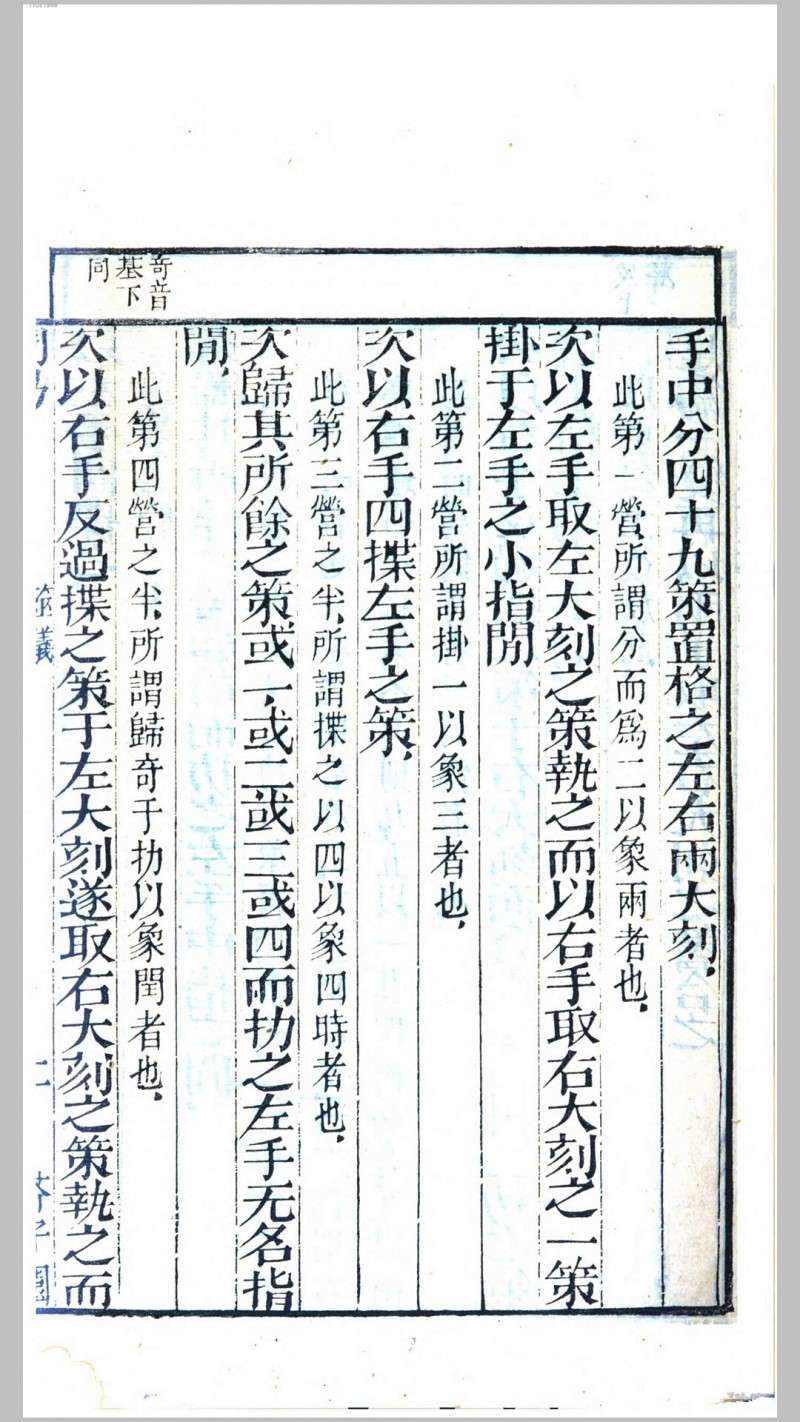 奇音
基下
同
手中分四十九策置格之左右兩大刻
此第一營所謂分而爲二以象兩者也
次以左手取左大刻之策執之而以右手取右大刻之一策
掛于左手之小指閒
此第二營所謂掛一以象三者也
次以右手四揲左手之策
此第三營之半所謂揲之以四以象四時者也
次歸其所餘之策或一或二或三或四而扐之左手无名指
閒
此第四營之半所謂歸奇于扐以象閏者也
次以右手反過揲之策于左大刻遂取右大刻之策執之而